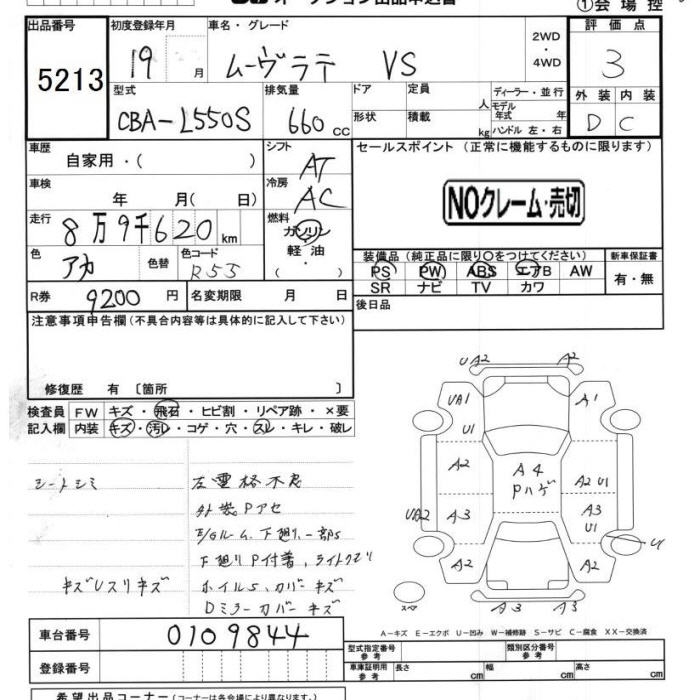 ①会場控
出品番号
5213
初度登録年月
19 月
車名・グレード
ムーヴラテ VS
2WD
・
4WD
評価点
3
型式
CBA-L550S
排気量
660 CC
ドア
形状
定員
人
積載
kg
ディーラー・並行
モデル
年式 年
ハンドル 左・右
外装 内装
D C
車歴
自家用・( )
シフト
AT
セールスポイント (正常に機能するものに限ります)
車検
年 月( 日)
冷房
AC
NOクレーム・売切
走行
8万9千620 km
燃料
ガソリン
軽・油
( )
色
アカ
色替
色コード
R55
装備品 (純正品に限り○をつけてください)
新車保証書
PS PW ABS エアB AW
SR ナビ TV カワ
有・無
R券
9200 円
名変期限 月 日
後日品
注意事項申告欄 (不具合内容等は具体的に記入して下さい)
修復歴 有 〔箇所 〕
検査員
記入欄
FW キズ・飛石・ヒビ割・リペア跡・×要
内装 キズ・汚レ・コゲ・穴・スレ・キレ・破レ
シートシミ
外装Pアセ
下廻りP付着、ライトクモリ
キズUスリキズ
ホイルS、カバーキズ
Dミラーカバーキズ
UA2 A2
UA1 A1
U1
A2
A4
Pハゲ
A2 U1
UB2 A3
A3
U1
U
A2 A2
スペア
A3 A3
A-キズ E-エクボ U-凹み W-補修跡 S-サビ C-腐食 XX-交換済
車台番号
0109844
登録番号
型式指定番号
参考
類別区分番号
参考
車庫証明用
参考
長さ cm
幅 cm
高さ cm
希望出品コーナー(コーナーは各会場により異なります。)